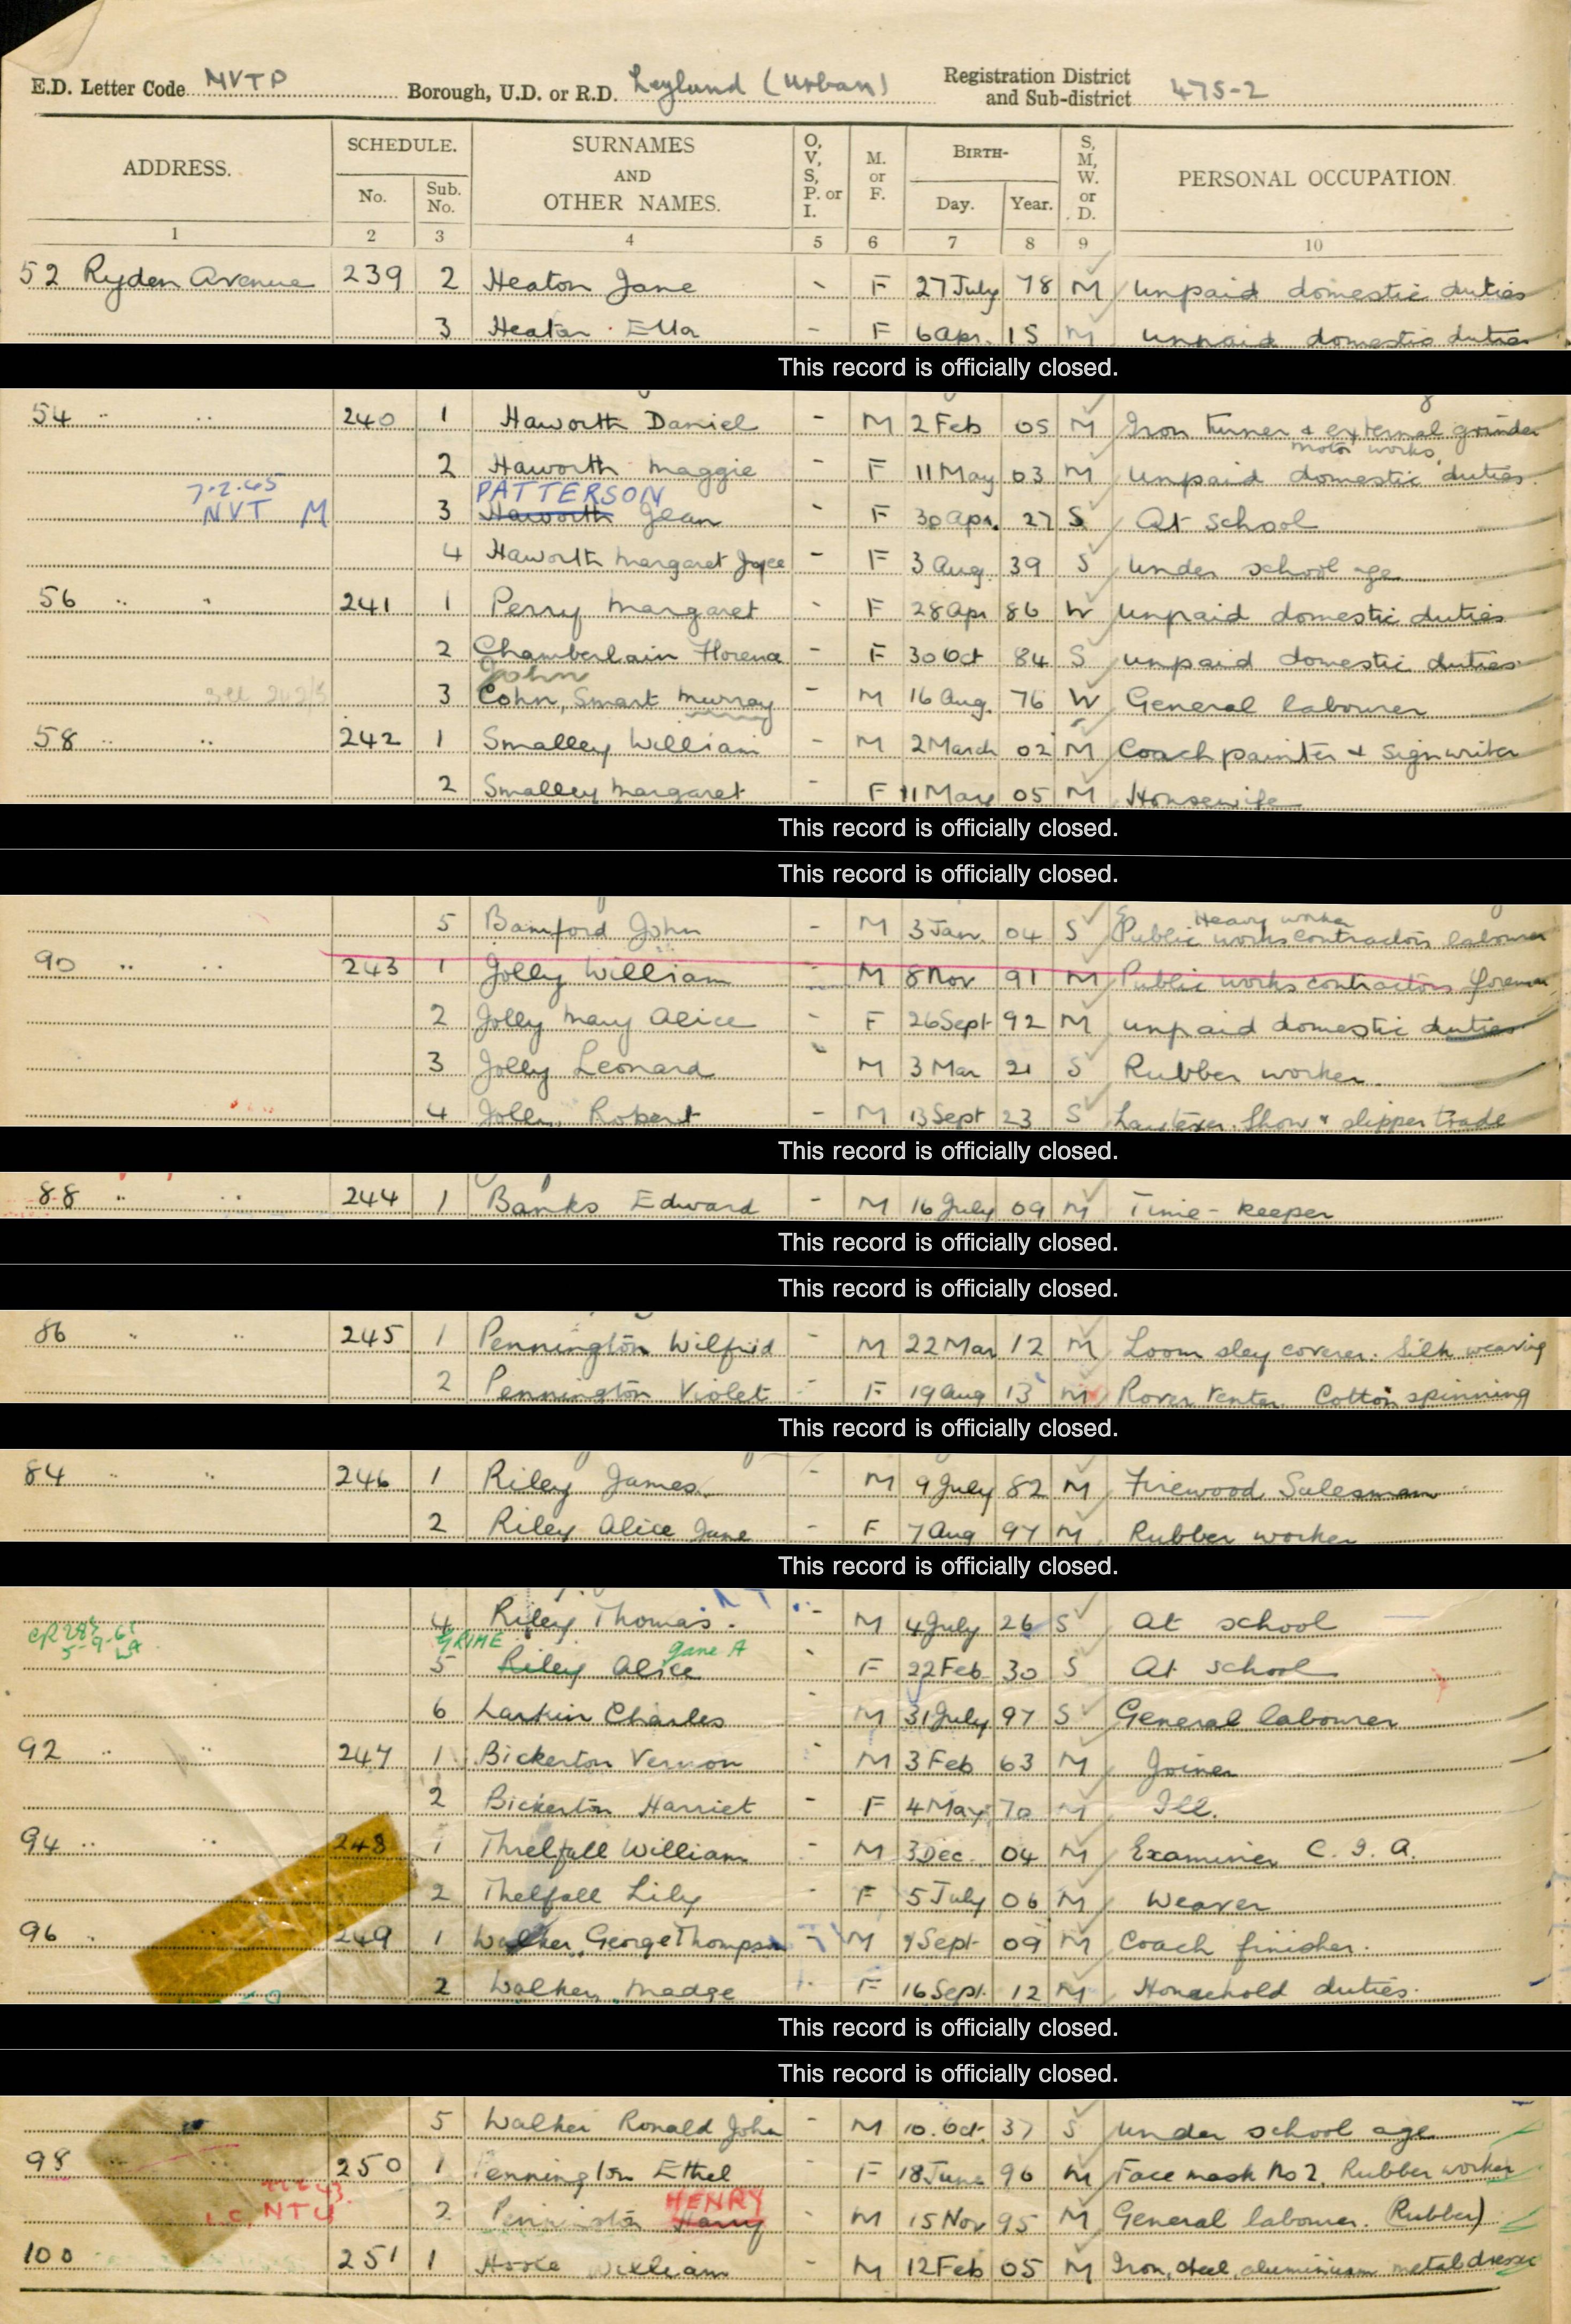 E.D. Letter Code MVTP Borough, U.D. or R.D. Leyland (Urban) Registration District and Sub-district 475-2
ADDRESS. SCHEDULE. No. Sub. No. SURNAMES AND OTHER NAMES. O, V, S, P. or I. M. or F. BIRTH- Day. Year. S, M, W. or D. PERSONAL OCCUPATION.
1 2 3 4 5 6 7 8 9 10
52 Ryden Avenue 239 2 Heaton Jane - F 27 July 78 M Unpaid domestic duties
3 Heaton Ella - F 6 Apr. 15 M unpaid domestic duties
This record is officially closed.
54 " " 240 1 Haworth Daniel - M 2 Feb 05 M Iron turner & external grinder
motor works.
2 Haworth Maggie - F 11 May 03 M Unpaid domestic duties
7.2.45 PATTERSON
NVT M 3 Haworth Jean - F 30 Apr. 27 S At School
4 Haworth Margaret Joyce - F 3 Aug 39 S Under school age
56 " " 241 1 Perry Margaret - F 28 Apr 86 W Unpaid domestic duties
2 Chamberlain Florence - F 30 Oct 84 S unpaid domestic duties
John
See 242/3 3 Cohn, Smart Murray - M 16 Aug. 76 W General labourer
58 " " 242 1 Smalley William - M 2 March 02 M Coach painter & Signwriter
2 Smalley Margaret - F 11 May 05 M Housewife
This record is officially closed.
This record is officially closed.
Heavy worker
5 Bamford John - M 3 Jan. 04 S Public works contractors labourer
90 " " 243 1 Jolly William - M 8 Nov 91 M Public works contractors foreman
2 Jolly Mary Alice - F 26 Sept 92 M unpaid domestic duties
3 Jolly Leonard - M 3 Mar 21 S Rubber worker
4 Jolly Robert - M 13 Sept 23 S Show & slipper trade
This record is officially closed.
88 " " 244 1 Banks Edward - M 16 July 09 M Time-keeper
This record is officially closed.
This record is officially closed.
86 " " 245 1 Pennington Wilfrid - M 22 Mar 12 M Loom sley coverer. Silk weaving
2 Pennington Violet - F 19 Aug 13 M Rover tenter Cotton spinning
This record is officially closed.
84 " " 246 1 Riley James - M 9 July 82 M Firewood Salesman
2 Riley Alice Jane - F 7 Aug 97 M Rubber worker
This record is officially closed.
4 Riley Thomas. - M 4 July 26 S At school
CR283 5-9-61 GRIME Jane A
5 Riley Alice - F 22 Feb 30 S At school
6 Larkin Charles M 31 July 97 S General labourer
92 " " 247 1 Bickerton Vernon - M 3 Feb 63 M Joiner
2 Bickerton Harriet - F 4 May 70 M Ill.
94 " " 248 1 Threlfall William - M 3 Dec. 04 M Examiner C. I. A.
2 Thelfall Lily - F 5 July 06 M Weaver
96 " " 249 1 Walker George Thompson - M 9 Sept 09 M Coach finisher.
2 Walker, Madge F 16 Sept. 12 M Household duties.
This record is officially closed.
This record is officially closed.
5 Walker Ronald John - M 10. Oct. 37 S under school age
98 " " 250 1 Pennington Ethel - F 18 June 96 M Face mask No 2, Rubber worker
NTU HENRY
2 Pennington Harry - M 15 Nov 95 M General labourer. (Rubber)
100 251 1 Hoole William - M 12 Feb 05 M Iron, steel, aluminium metal dresser